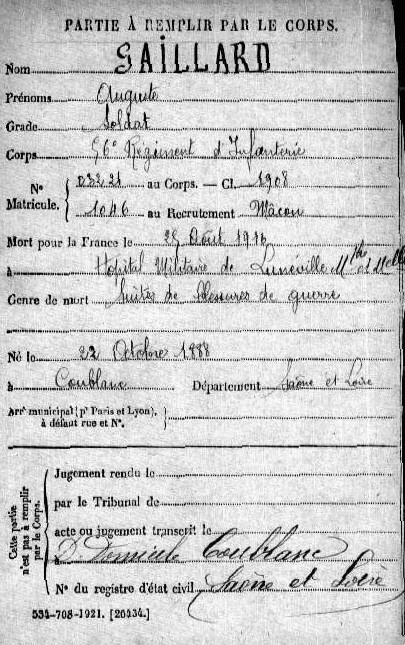 PARTIE À REMPLIR PAR LE CORPS.
Nom GAILLARD
Prénoms Auguste
Grade Soldat
Corps 56e Régiment d'Infanterie
No 03221 au Corps. — Cl. 1908
Matricule. 1046 au Recrutement Mâcon
Mort pour la France le 25 Août 1916
à Hôpital Militaire de Lunéville Mthe et Mlle
Genre de mort Suites de blessures de guerre
Né le 22 Octobre 1888
à Coublanc Département Saône et Loire
Arrt municipal (pr Paris et Lyon), à défaut rue et No.
Cette partie n'est pas à remplir par le Corps.
Jugement rendu le
par le Tribunal de
acte ou jugement transcrit le
à Domicile Coublanc
No du registre d'état civil Saône et Loire
534-708-1921. [26434.]